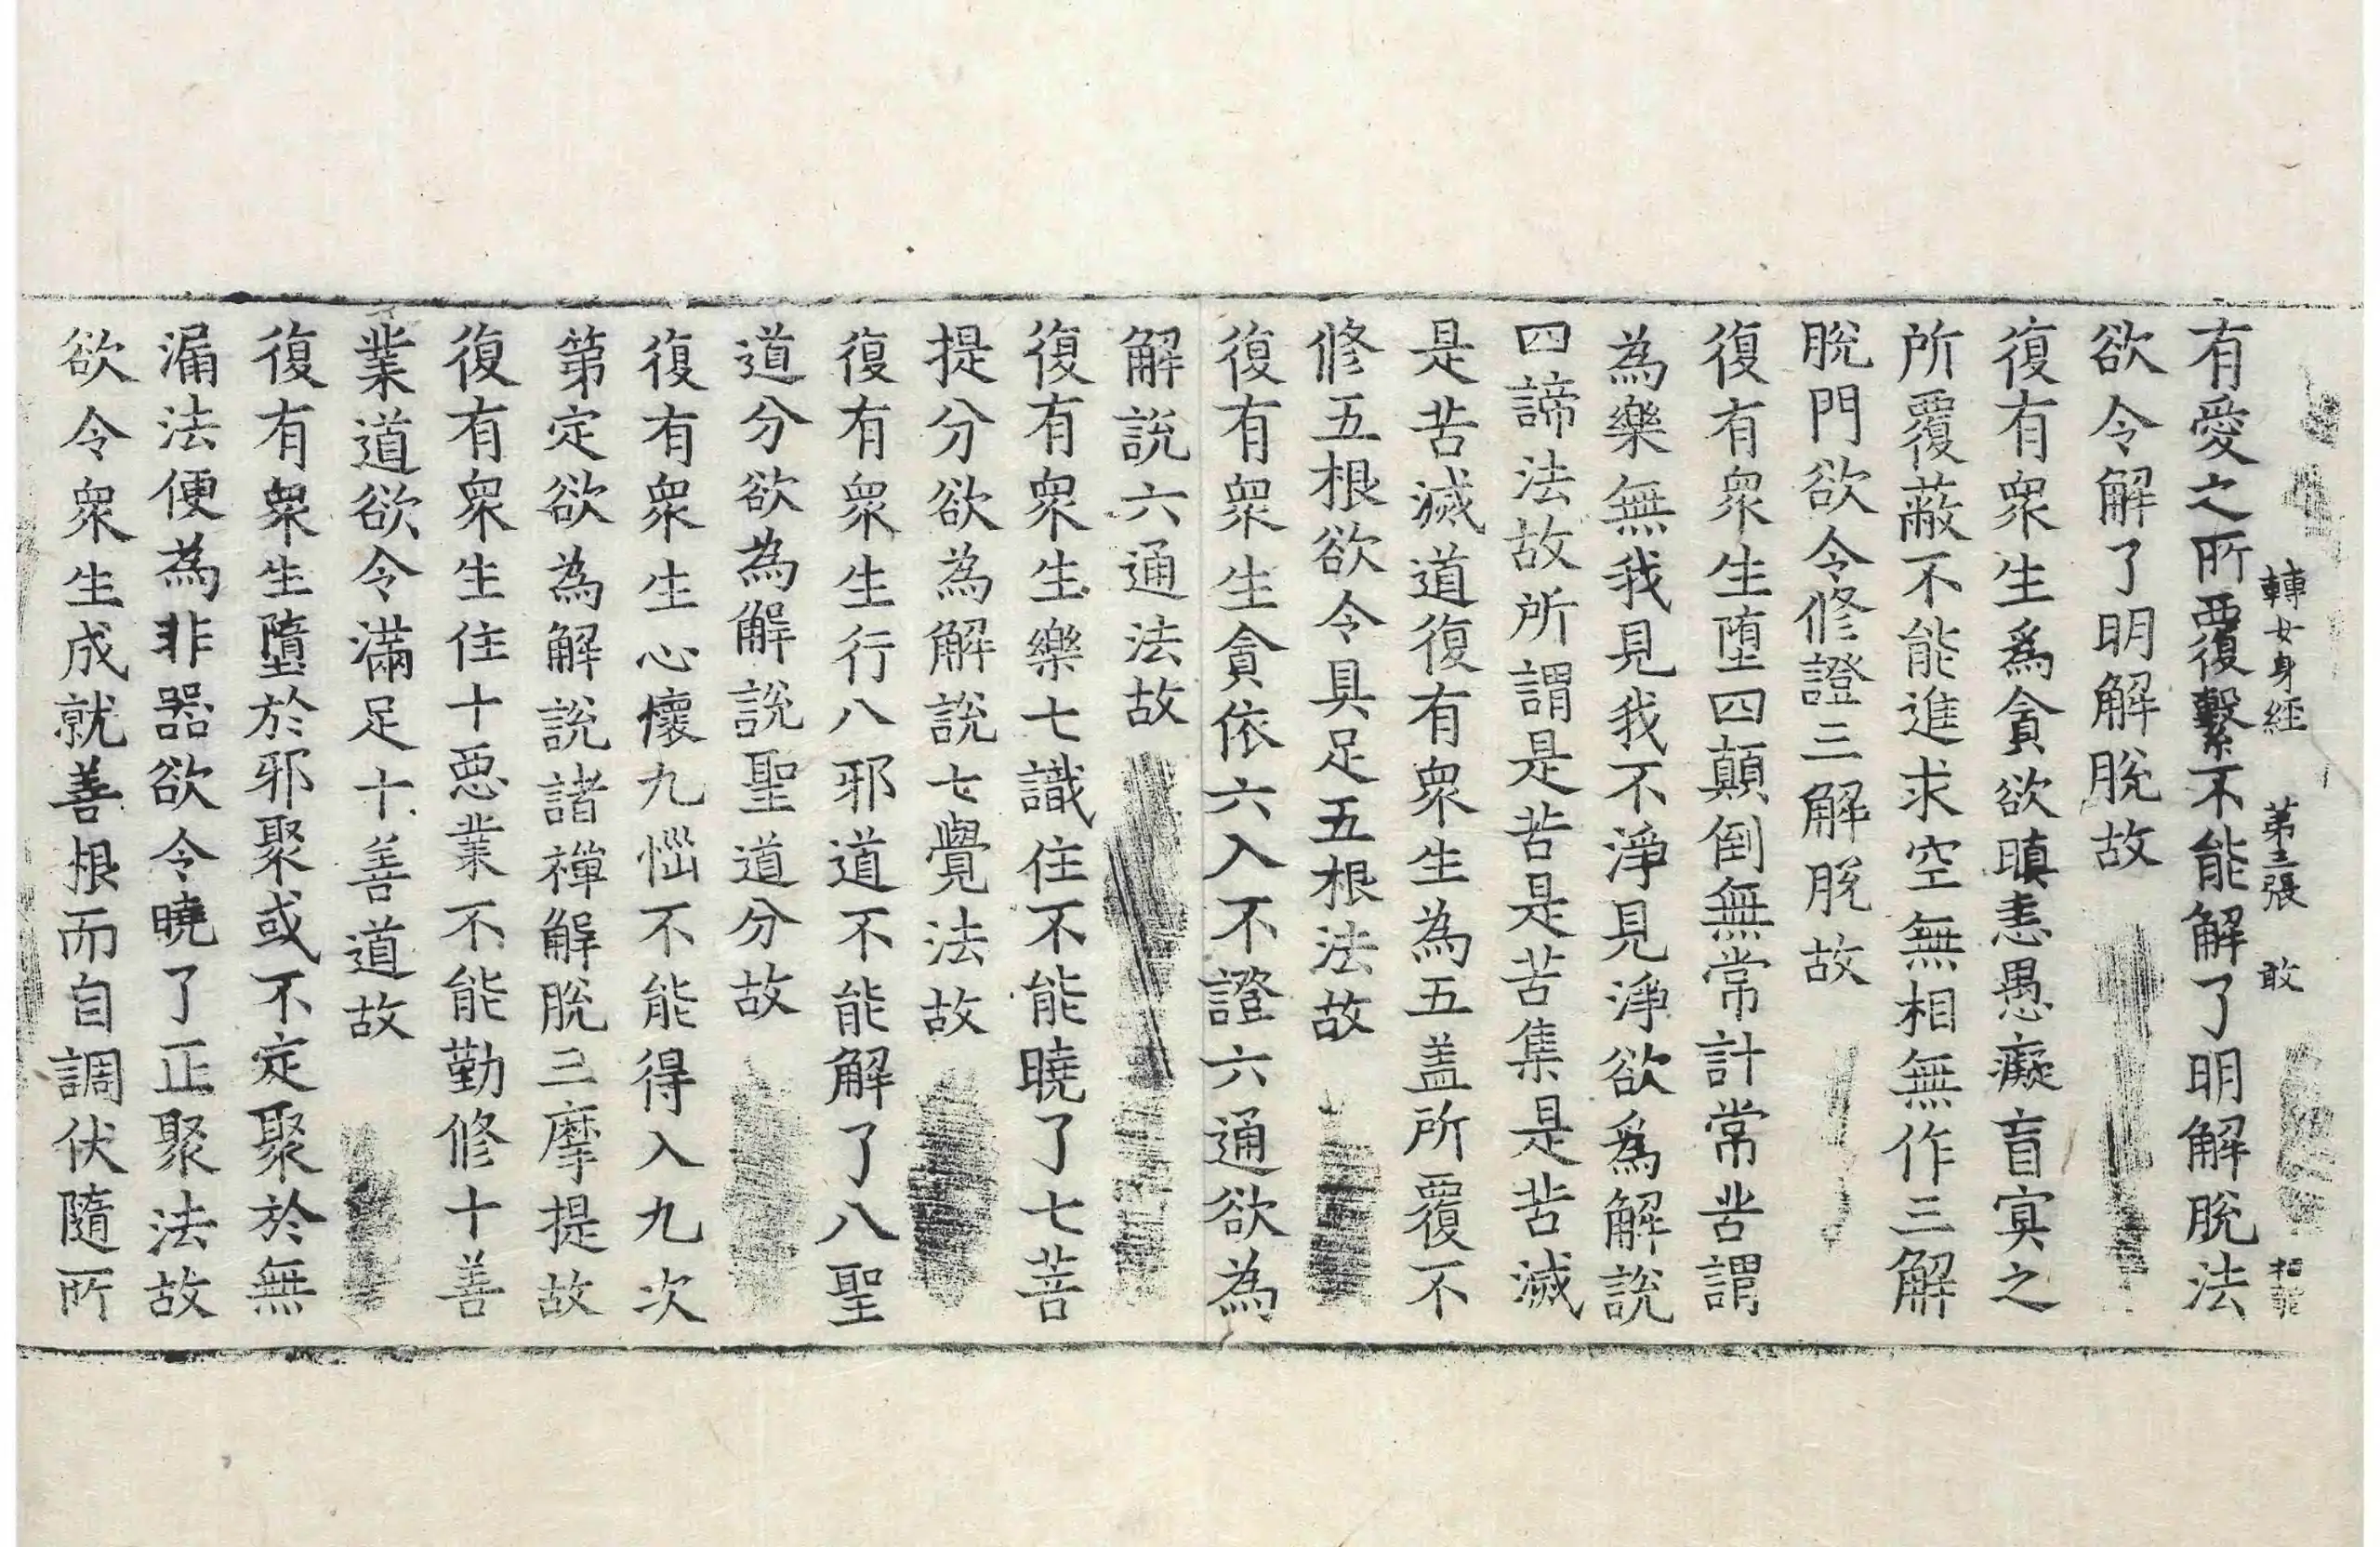 轉女身經 第三張 敢
有愛之所覆繫不能解了明解脫法
欲令解了明解脫故
復有衆生爲貪欲瞋恚愚癡盲冥之
所覆蔽不能進求空無相無作三解
脫門欲令修證三解脫故
復有衆生墮四顛倒無常計常苦謂
為樂無我見我不淨見淨欲爲解說
四諦法故所謂是苦是苦集是苦滅
是苦滅道復有衆生為五盖所覆不
修五根欲令具足五根法故
復有衆生貪依六入不證六通欲為
解說六通法故
復有衆生樂七識住不能曉了七菩
提分欲為解說七覺法故
復有衆生行八邪道不能解了八聖
道分欲為解說聖道分故
復有衆生心懷九惱不能得入九次
第定欲為解說諸禪解脫三摩提故
復有衆生住十惡業不能勤修十善
業道欲令滿足十善道故
復有衆生墮於邪聚或不定聚於無
漏法便為非器欲令曉了正聚法故
欲令衆生成就善根而自調伏隨所